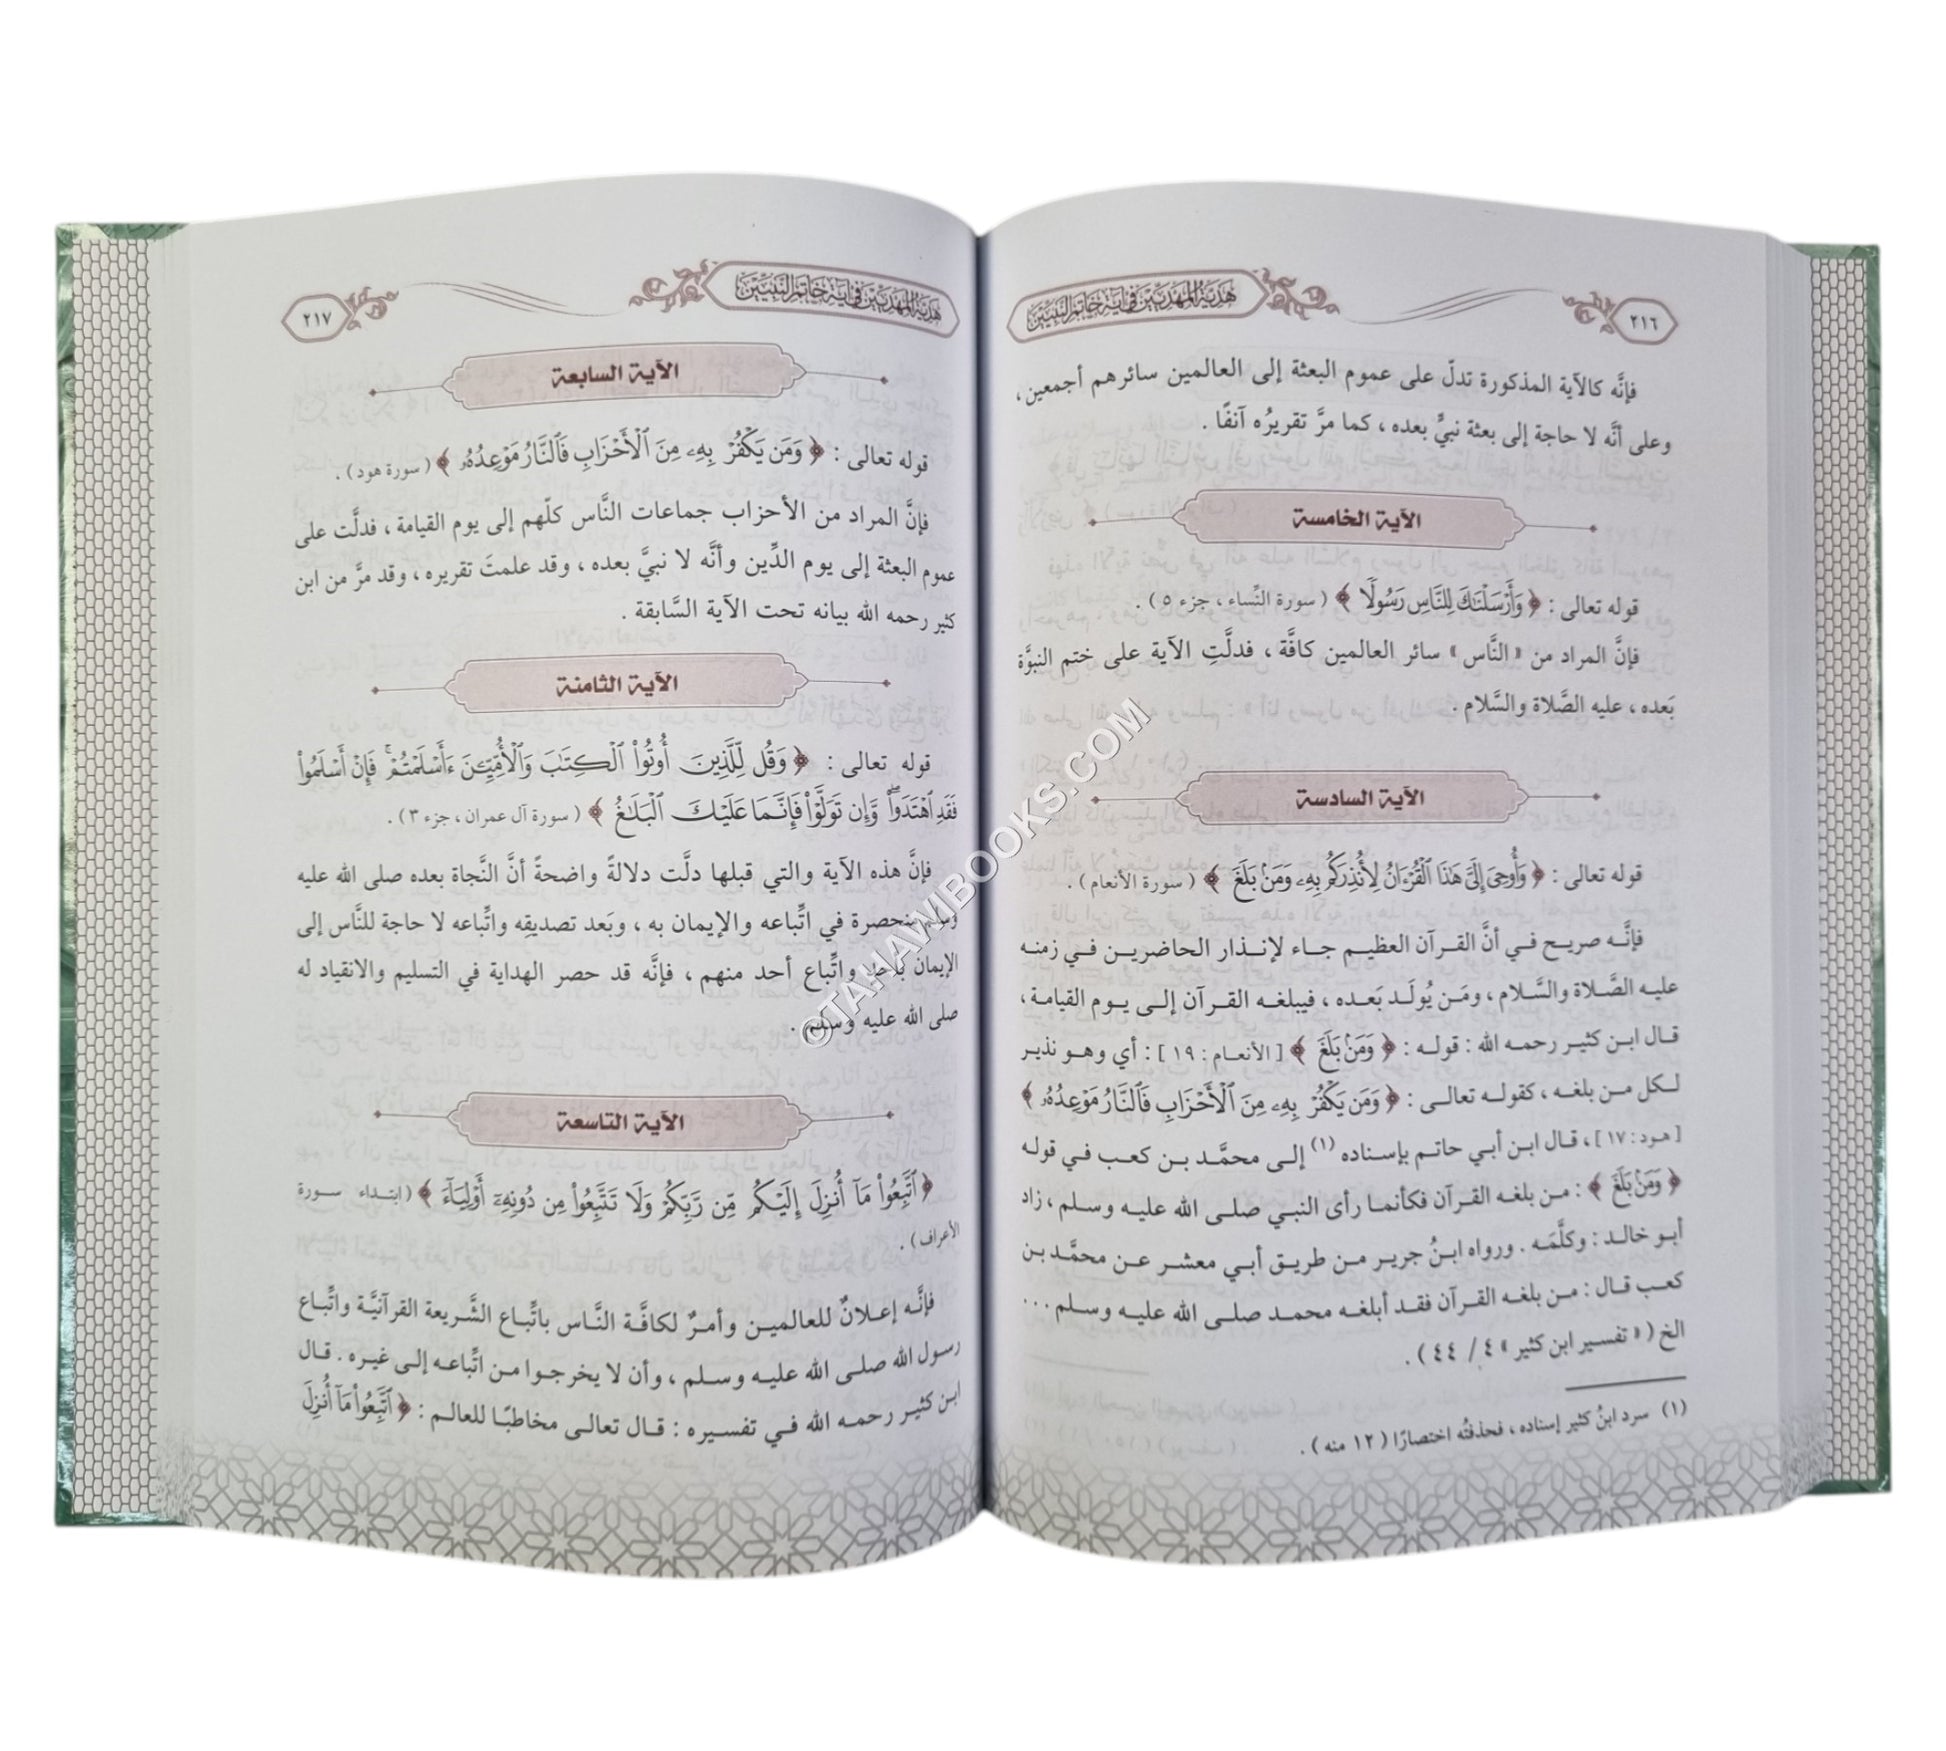 هدية المهديين في آية خاتم النبيين
٢١٦
فإنَّه كالآية المذكورة تدلّ على عموم البعثة إلى العالمين سائرهم أجمعين ،
وعلى أنَّه لا حاجة إلى بعثة نبيٍّ بعده ، كما مرَّ تقريرُه آنفًا .
الآية الخامسة
قوله تعالى : ﴿ وَأَرْسَلْنَٰكَ لِلنَّاسِ رَسُولًا ﴾ ( سورة النِّساء ، جزء ٥ ) .
فإنَّ المراد من « النَّاس » سائر العالمين كافَّة ، فدلَّتِ الآية على ختم النبوَّة
بَعده ، عليه الصَّلاة والسَّلام .
الآية السادسة
قوله تعالى : ﴿ وَأُوحِىَ إِلَىَّ هَٰذَا ٱلْقُرْءَانُ لِأُنذِرَكُم بِهِۦ وَمَنۢ بَلَغَ ﴾ ( سورة الأنعام ) .
فإنَّه صريح في أنَّ القرآن العظيم جاء لإنذار الحاضرين في زمنه
عليه الصَّلاة والسَّلام ، ومَن يُولَد بَعده ، فيبلغه القرآن إلى يوم القيامة ،
قال ابن كثير رحمه الله : قوله : ﴿ وَمَنۢ بَلَغَ ﴾ [ الأنعام : ١٩ ] : أي وهو نذير
لكل من بلغه ، كقوله تعالى : ﴿ وَمَن يَكْفُرْ بِهِۦ مِنَ ٱلْأَحْزَابِ فَٱلنَّارُ مَوْعِدُهُۥ ﴾
[ هود : ١٧ ] ، قال ابن أبي حاتم بإسناده (١) إلى محمَّد بن كعب في قوله
﴿ وَمَنۢ بَلَغَ ﴾ : من بلغه القرآن فكأنما رأى النبي صلى الله عليه وسلم ، زاد
أبو خالد : وكلَّمَه . ورواه ابنُ جرير من طريق أبي معشر عن محمَّد بن
كعب قال : من بلغه القرآن فقد أبلغه محمد صلى الله عليه وسلم ...
الخ ( « تفسير ابن كثير » ٤ / ٤٤ ) .
(١) سرد ابنُ كثير إسناده ، فحذفتُه اختصارًا ( ١٢ منه ) .
هدية المهديين في آية خاتم النبيين
٢١٧
الآية السابعة
قوله تعالى : ﴿ وَمَن يَكْفُرْ بِهِۦ مِنَ ٱلْأَحْزَابِ فَٱلنَّارُ مَوْعِدُهُۥ ﴾ ( سورة هود ) .
فإنَّ المراد من الأحزاب جماعات النَّاس كلّهم إلى يوم القيامة ، فدلَّت على
عموم البعثة إلى يوم الدِّين وأنَّه لا نبيَّ بعده ، وقد علمتَ تقريره ، وقد مرَّ من ابن
كثير رحمه الله بيانه تحت الآية السَّابقة .
الآية الثامنة
قوله تعالى : ﴿ وَقُل لِّلَّذِينَ أُوتُوا۟ ٱلْكِتَٰبَ وَٱلْأُمِّيِّـۧنَ ءَأَسْلَمْتُمْ ۚ فَإِنْ أَسْلَمُوا۟
فَقَدِ ٱهْتَدَوا۟ ۖ وَّإِن تَوَلَّوْا۟ فَإِنَّمَا عَلَيْكَ ٱلْبَلَٰغُ ﴾ ( سورة آل عمران ، جزء ٣ ) .
فإنَّ هذه الآية والتي قبلها دلَّت دلالةً واضحةً أنَّ النَّجاة بعده صلى الله عليه
وسلم منحصرة في اتِّباعه والإيمان به ، وبَعد تصديقِه واتِّباعه لا حاجة للنَّاس إلى
الإيمان بأحد واتِّباع أحد منهم ، فإنَّه قد حصر الهداية في التسليم والانقياد له
صلى الله عليه وسلم .
الآية التاسعة
﴿ ٱتَّبِعُوا۟ مَآ أُنزِلَ إِلَيْكُم مِّن رَّبِّكُمْ وَلَا تَتَّبِعُوا۟ مِن دُونِهِۦٓ أَوْلِيَآءَ ﴾ ( ابتداء سورة
الأعراف ) .
فإنَّه إعلانٌ للعالمين وأمرٌ لكافَّة النَّاس باتِّباع الشَّريعة القرآنيَّة واتِّباع
رسول الله صلى الله عليه وسلم ، وأن لا يخرجوا من اتِّباعه إلى غيره . قال
ابن كثير رحمه الله في تفسيره : قال تعالى مخاطبًا للعالم : ﴿ ٱتَّبِعُوا۟ مَآ أُنزِلَ
©TAHAWIBOOKS.COM